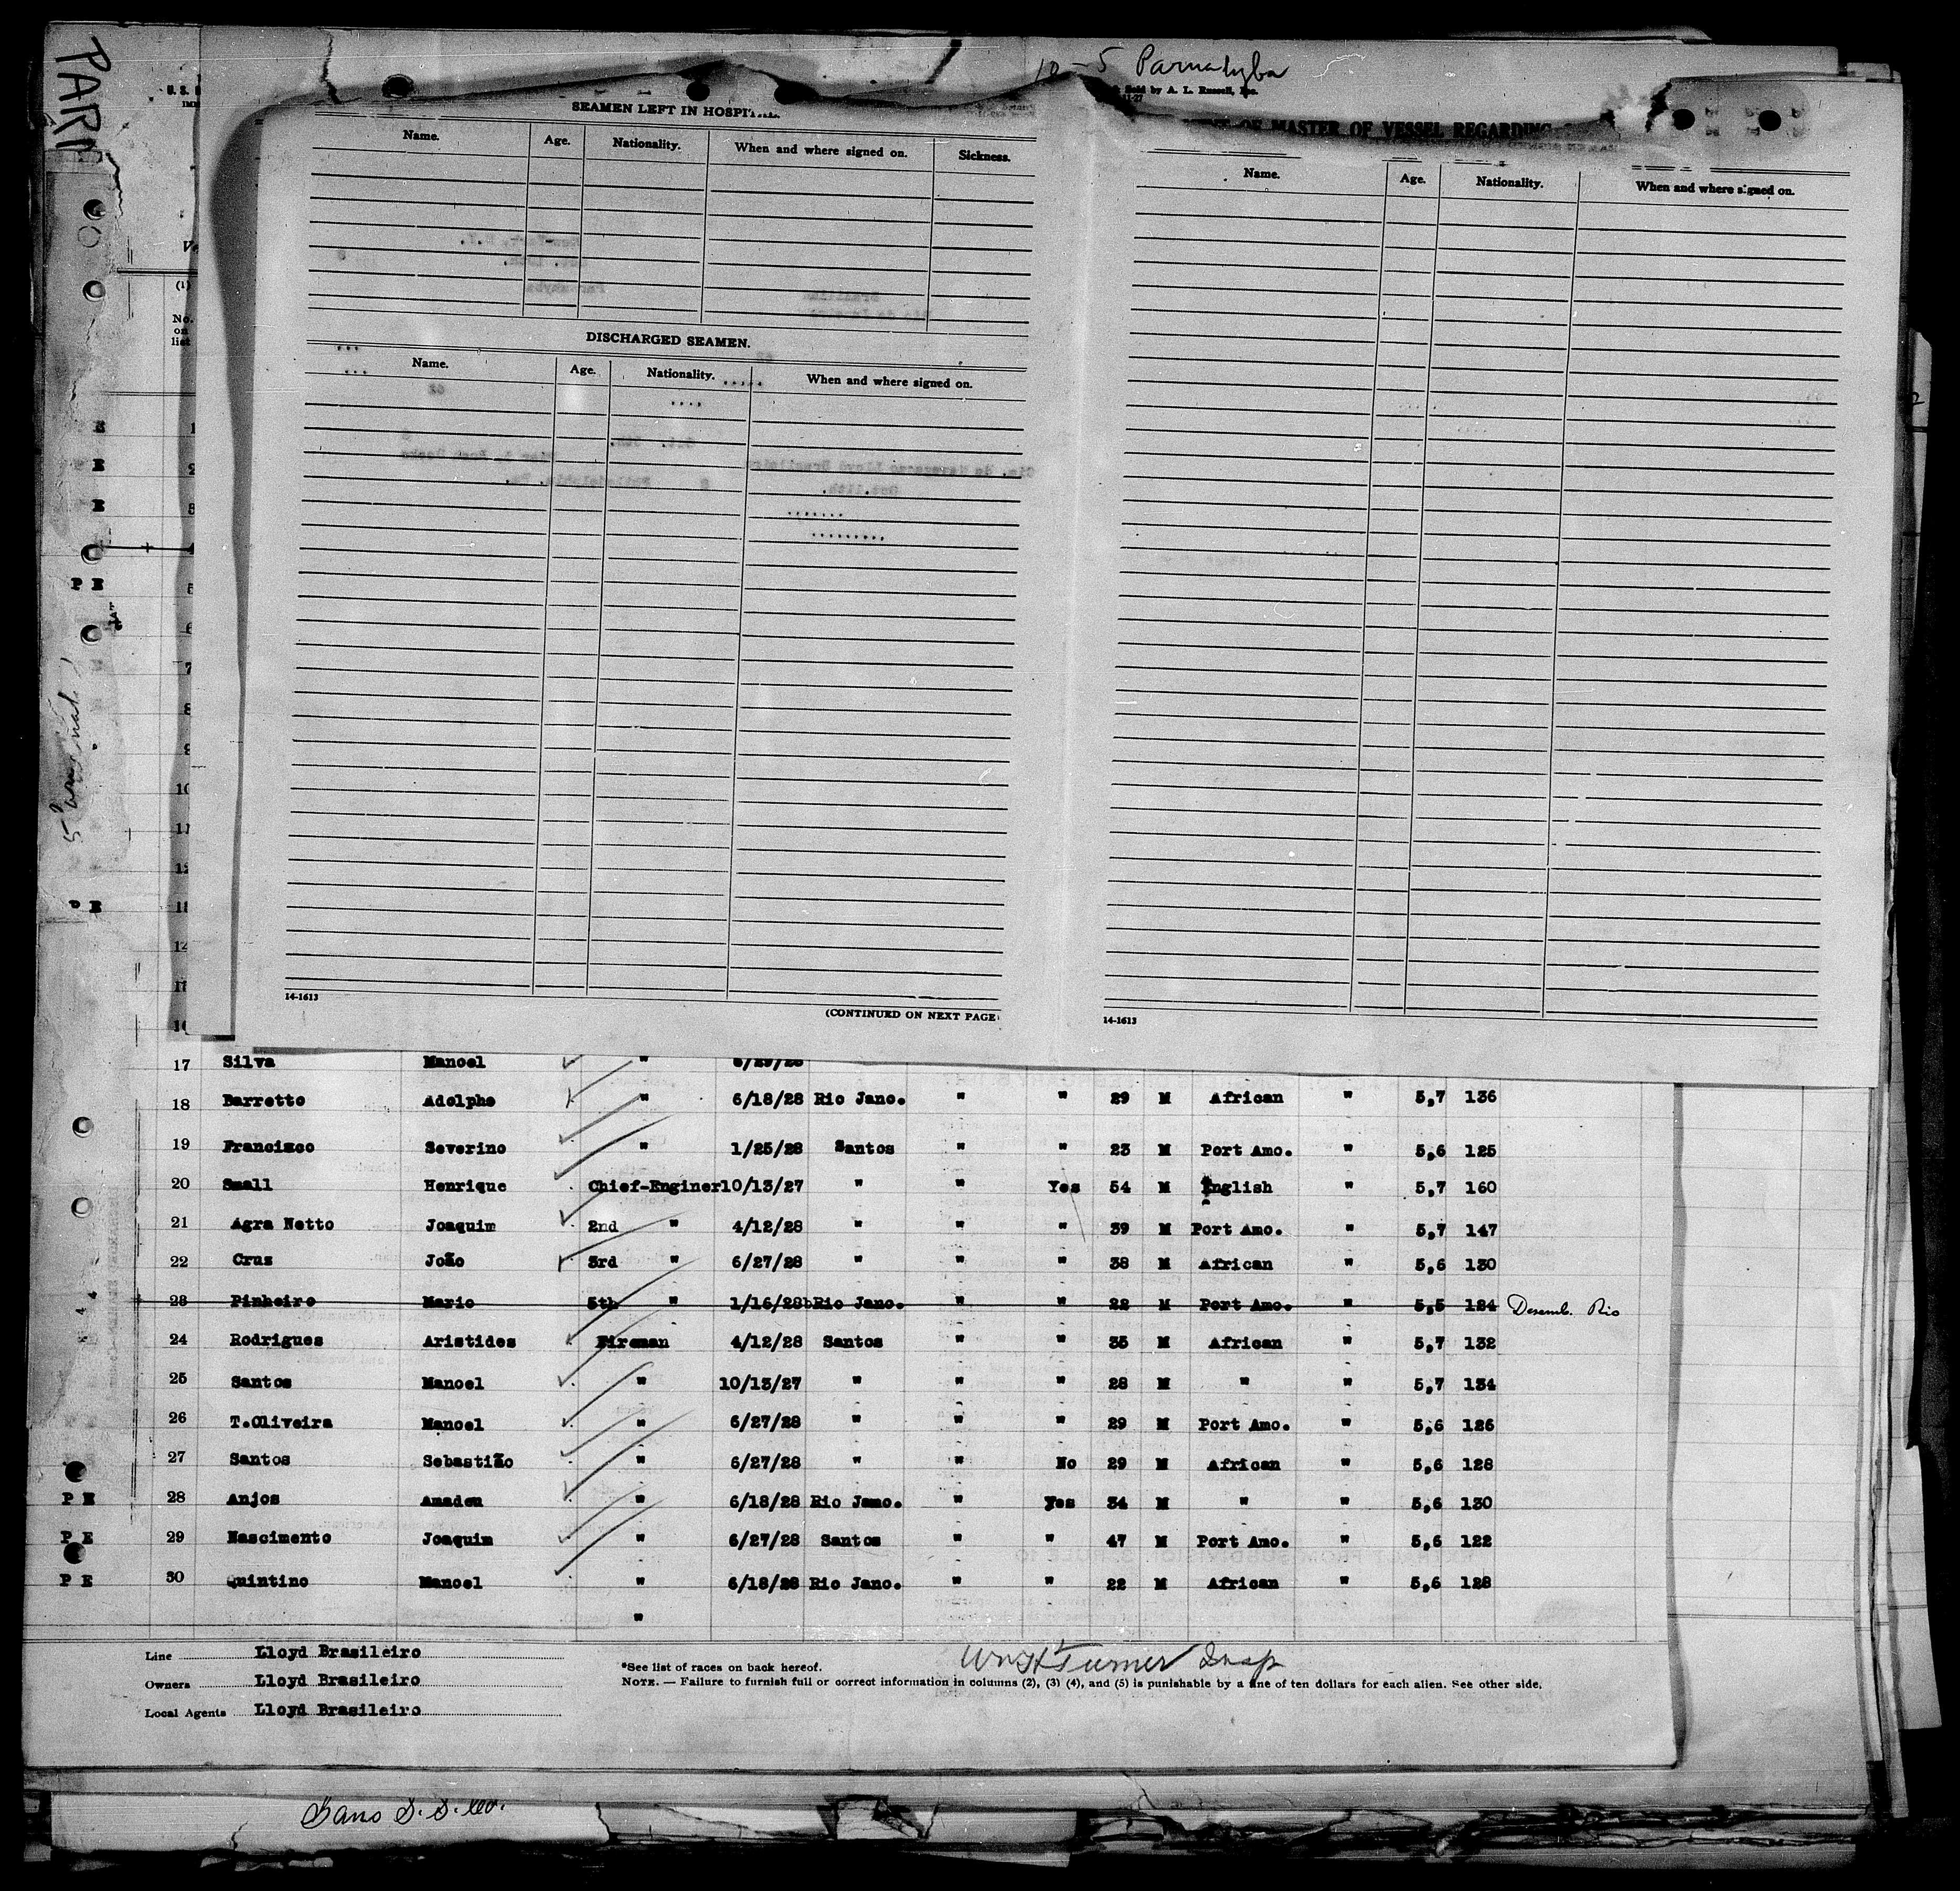 10-5 Parnahyba
PARN
Sold by A. L. Russell, Inc.
SEAMEN LEFT IN HOSPIT
OF MASTER OF VESSEL REGARDING
Name. Age. Nationality. When and where signed on. Sickness.
Name. Age. Nationality. When and where signed on.
DISCHARGED SEAMEN.
Name. Age. Nationality. When and where signed on.
(1)
No.
on
list
14-1613
(CONTINUED ON NEXT PAGE
14-1613
17 Silva Manoel "
18 Barretto Adolpho " 6/18/28 Rio Jano. " " 29 M African " 5,7 136
19 Francisco Severino " 1/25/28 Santos " " 23 M Port Amo. " 5,6 125
20 Small Henrique Chief-Enginer 10/13/27 " " Yes 54 M English " 5,7 160
21 Agra Netto Joaquim 2nd " 4/12/28 " " " 39 M Port Amo. " 5,7 147
22 Cruz João 3rd " 6/27/28 " " " 38 M African " 5,6 130
23 Pinheiro Mario 5th " 1/16/28 Rio Jano. " " 22 M Port Amo. " 5,5 124 Desemb. Rio
24 Rodrigues Aristides Fireman 4/12/28 Santos " " 35 M African " 5,7 132
25 Santos Manoel " 10/13/27 " " " 28 M " " 5,7 134
26 T.Oliveira Manoel " 6/27/28 " " " 29 M Port Amo. " 5,6 126
27 Santos Sebastião " 6/27/28 " " No 29 M African " 5,6 128
P E 28 Anjos Amadeu " 6/18/28 Rio Jano. " Yes 34 M " " 5,6 130
P E 29 Nascimento Joaquim " 6/27/28 Santos " " 47 M Port Amo. " 5,6 122
P E 30 Quintino Manoel " 6/18/28 Rio Jano. " " 22 M African " 5,6 128
"
Line Lloyd Brasileiro
Owners Lloyd Brasileiro
Local Agents Lloyd Brasileiro
*See list of races on back hereof.
Wm H Turner Insp
NOTE. — Failure to furnish full or correct information in columns (2), (3) (4), and (5) is punishable by a fine of ten dollars for each alien. See other side.